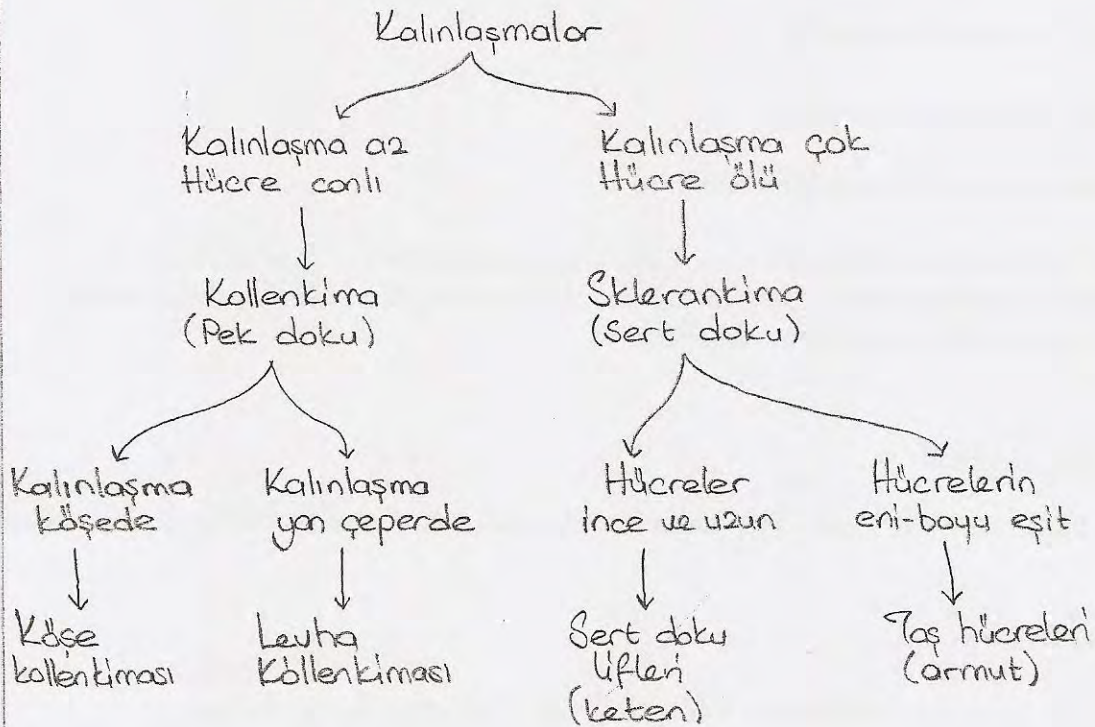 Kalınlaşmalar
Kalınlaşma az
Hücre canlı
Kalınlaşma çok
Hücre ölü
Kollenkima
(Pek doku)
Sklerankima
(Sert doku)
Kalınlaşma
köşede
Kalınlaşma
yan çeperde
Hücreler
ince ve uzun
Hücrelerin
eni-boyu eşit
Köşe
kollenkiması
Levha
Kollenkiması
Sert doku
lifleri
(keten)
Taş hücreleri
(armut)